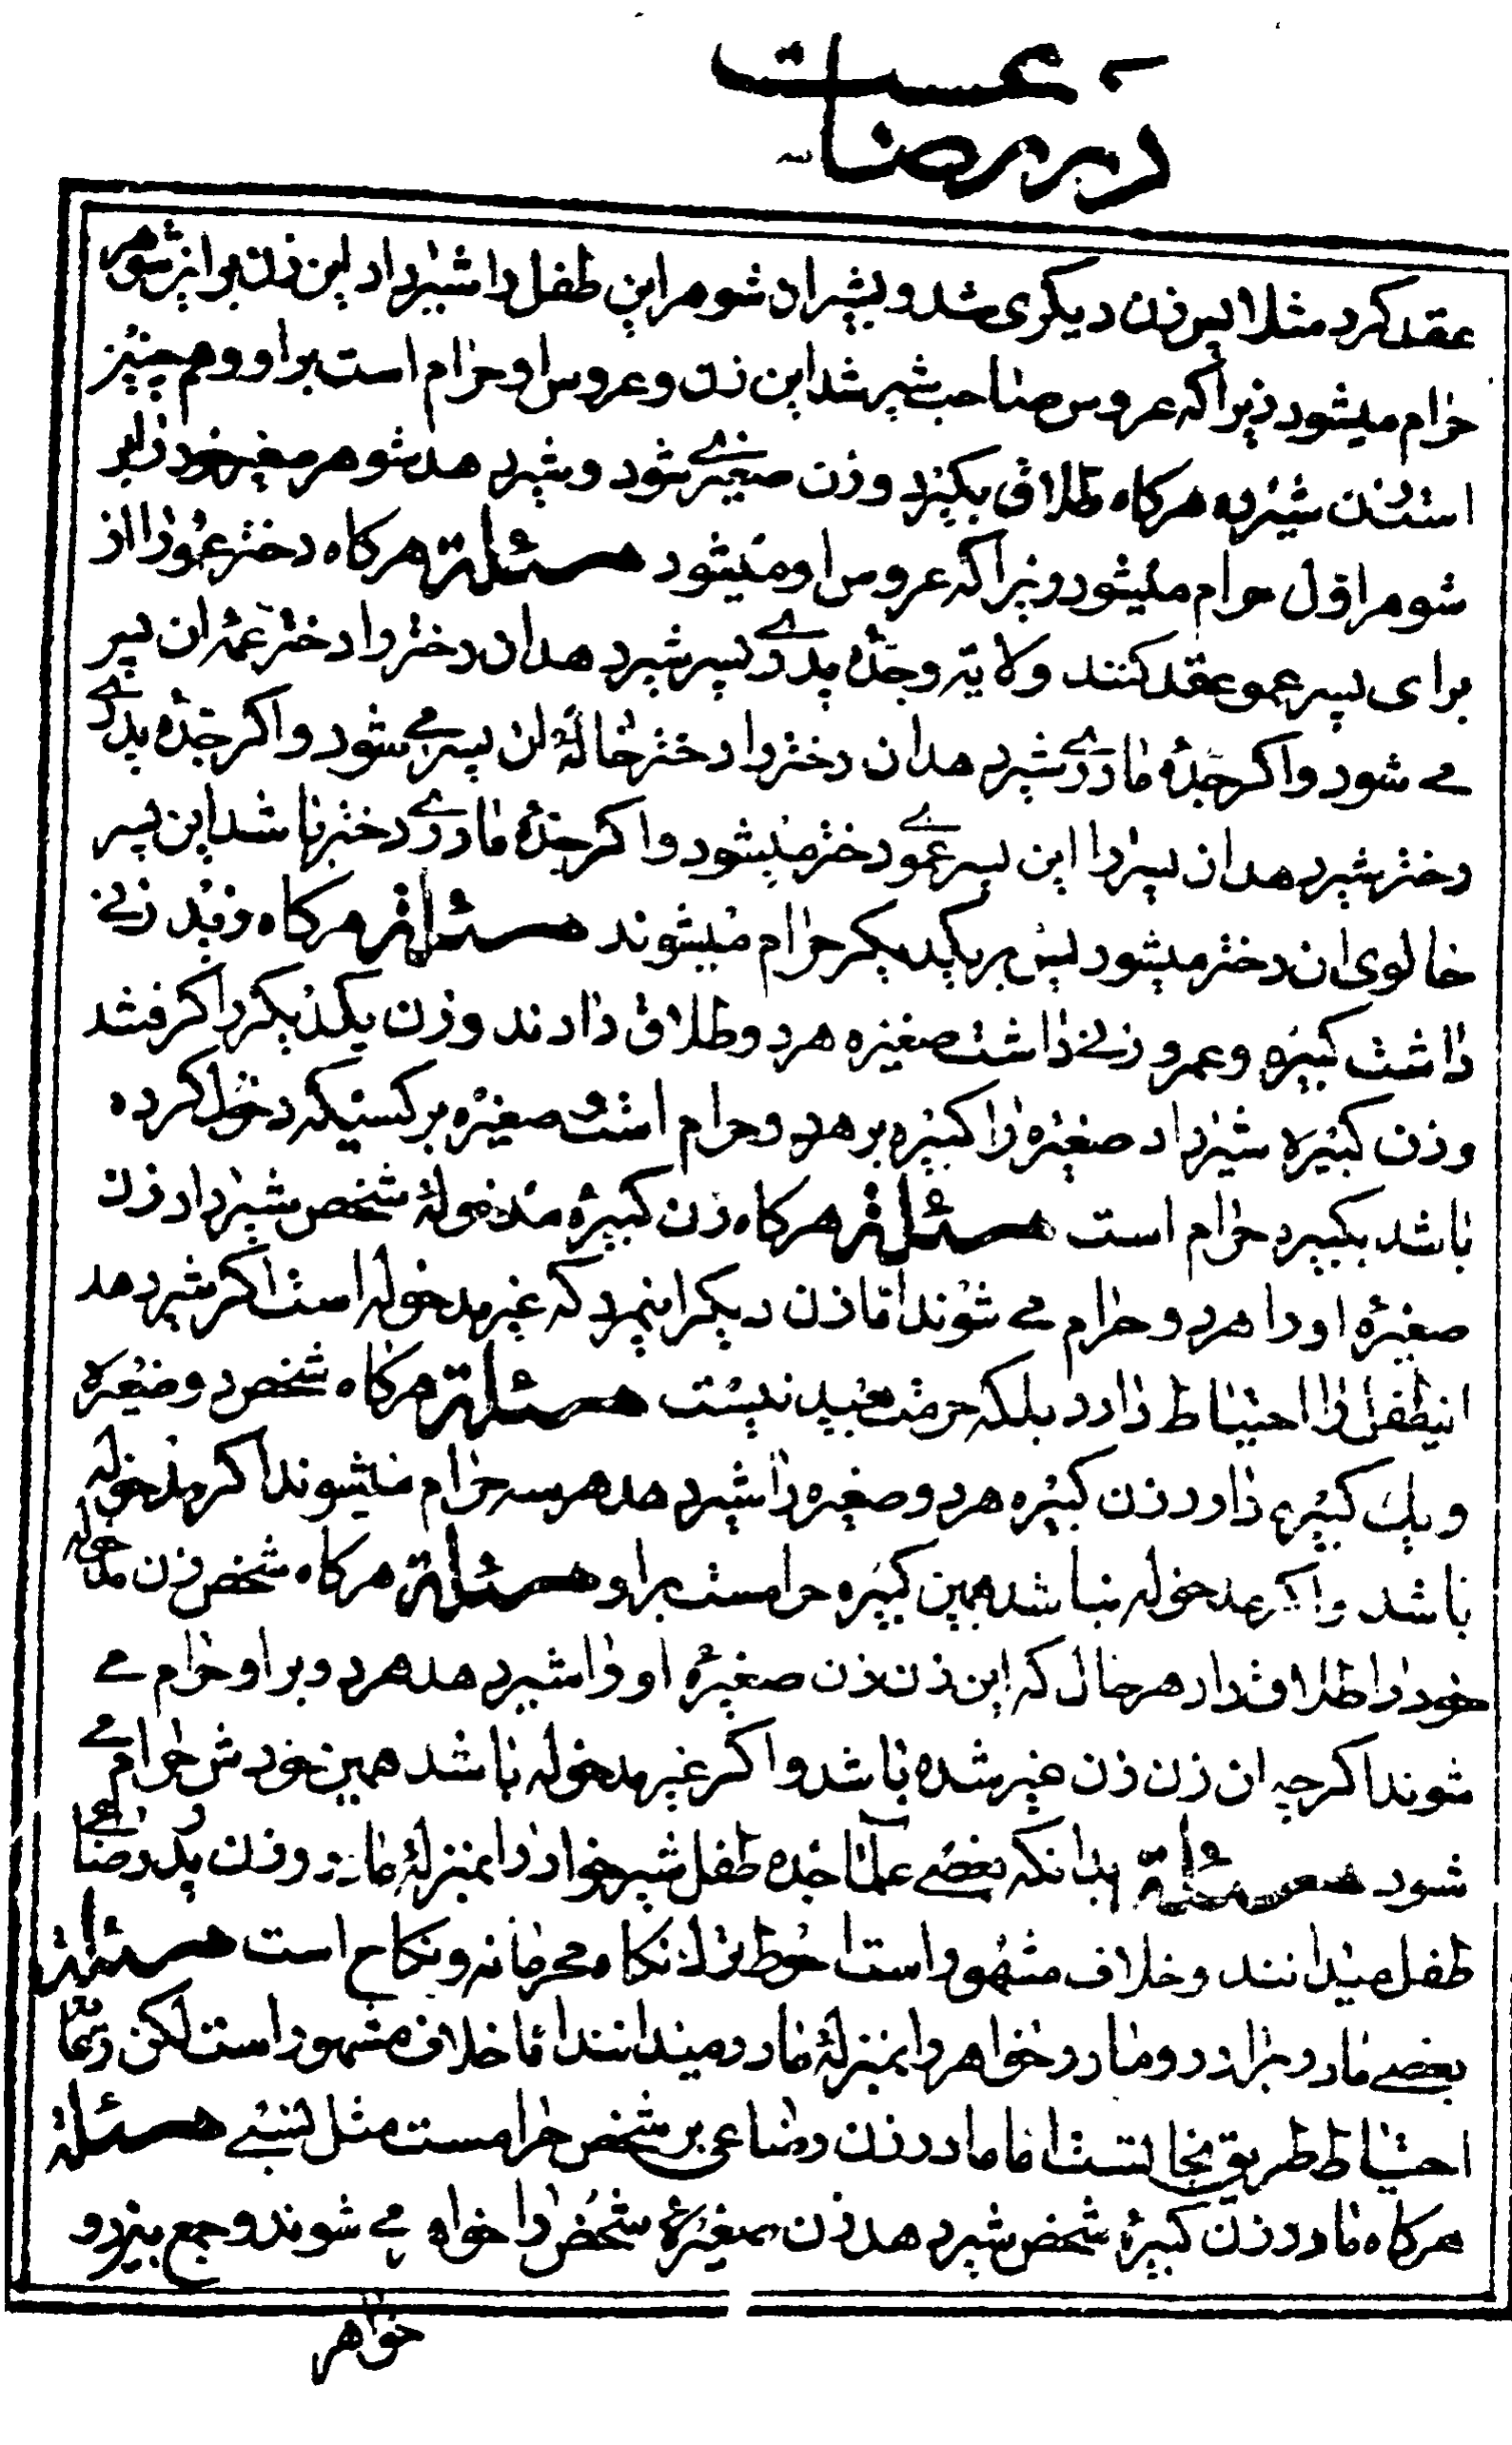 در رضاعست
عقد کرد مثلا پس زن دیگری شد و بشیر ان شوهر این طفل را شیر داد این زن بر این شوهر
حرام میشود زیرا که عروس صاحب شیر شد این زن و عروس او حرام است بر او و هم چنین
است زن شیرده هرگاه طلاق بگیرد و زن صغیری شود و شیر دهد شوهر صغیر خود را بر
شوهر اول حرام میشود زیرا که عروس او میشود مسئلة هرگاه دختر عمو را از
برای پسر عمو عقد کنند ولایة و جدّه پدری پسر شیر دهد ان دختر را دختر عمّه ان پسر
می شود و اگر جدّه مادری شیر دهد ان دختر را دختر خالهٔ ان پسر می شود و اگر جدّه پدری
دختر شیر دهد ان پسر را این پسر عموی دختر میشود و اگر جدّه مادری دختر باشد این پسر
خالوی ان دختر میشود پس بر یکدیگر حرام میشوند مسئلة هرگاه زید زنی
داشت کبیره و عمرو زنی داشت صغیره هر دو طلاق دادند و زن یکدیگر را گرفتند
و زن کبیره شیر داد صغیره را کبیره بر هر دو حرام است و صغیره بر کسیکه دخول کرده
باشد بکبیره حرام است مسئلة هرگاه زن کبیرهٔ مدخولهٔ شخص شیر داد زن
صغیرهٔ او را هر دو حرام می شوند اما زن دیگر اینمرد که غیر مدخوله است اگر شیر دهد
اینطفل را احتیاط دارد بلکه حرمت بعید نیست مسئلة هرگاه شخص دو صغیره
و یک کبیره دارد زن کبیره هر دو صغیره را شیر دهد هر سه حرام میشوند اگر مدخوله
باشد و اگر مدخوله نباشد همین کبیره حرامست بر او مسئلة هرگاه شخص زن مدخوله
خود را طلاق داد هر حال که این زن زن صغیرهٔ او را شیر دهد هر دو بر او حرام می
شوند اگرچه ان زن زن غیر شده باشد و اگر غیر مدخوله باشد همین خودش حرام می
شود مسئلة بدانکه بعضی علما جدّه طفل شیرخوار را بمنزلهٔ مادر زن پدر رضاعی
طفل میدانند و خلاف مشهور است احوط ترک نگاه محرمانه و نکاح است مسئلة
بعضی مادر برادر و مادر خواهر را بمنزلهٔ مادر میدانند اما خلاف مشهور است لکن رسمًا
احتیاط طریق نجاتست اما مادر زن رضاعی بر شخص حرامست مثل نسبی مسئلة
هرگاه مادر زن کبیرهٔ شخص شیر دهد زن صغیرهٔ شخص را خواهر می شوند و جمع بین دو
خواهر